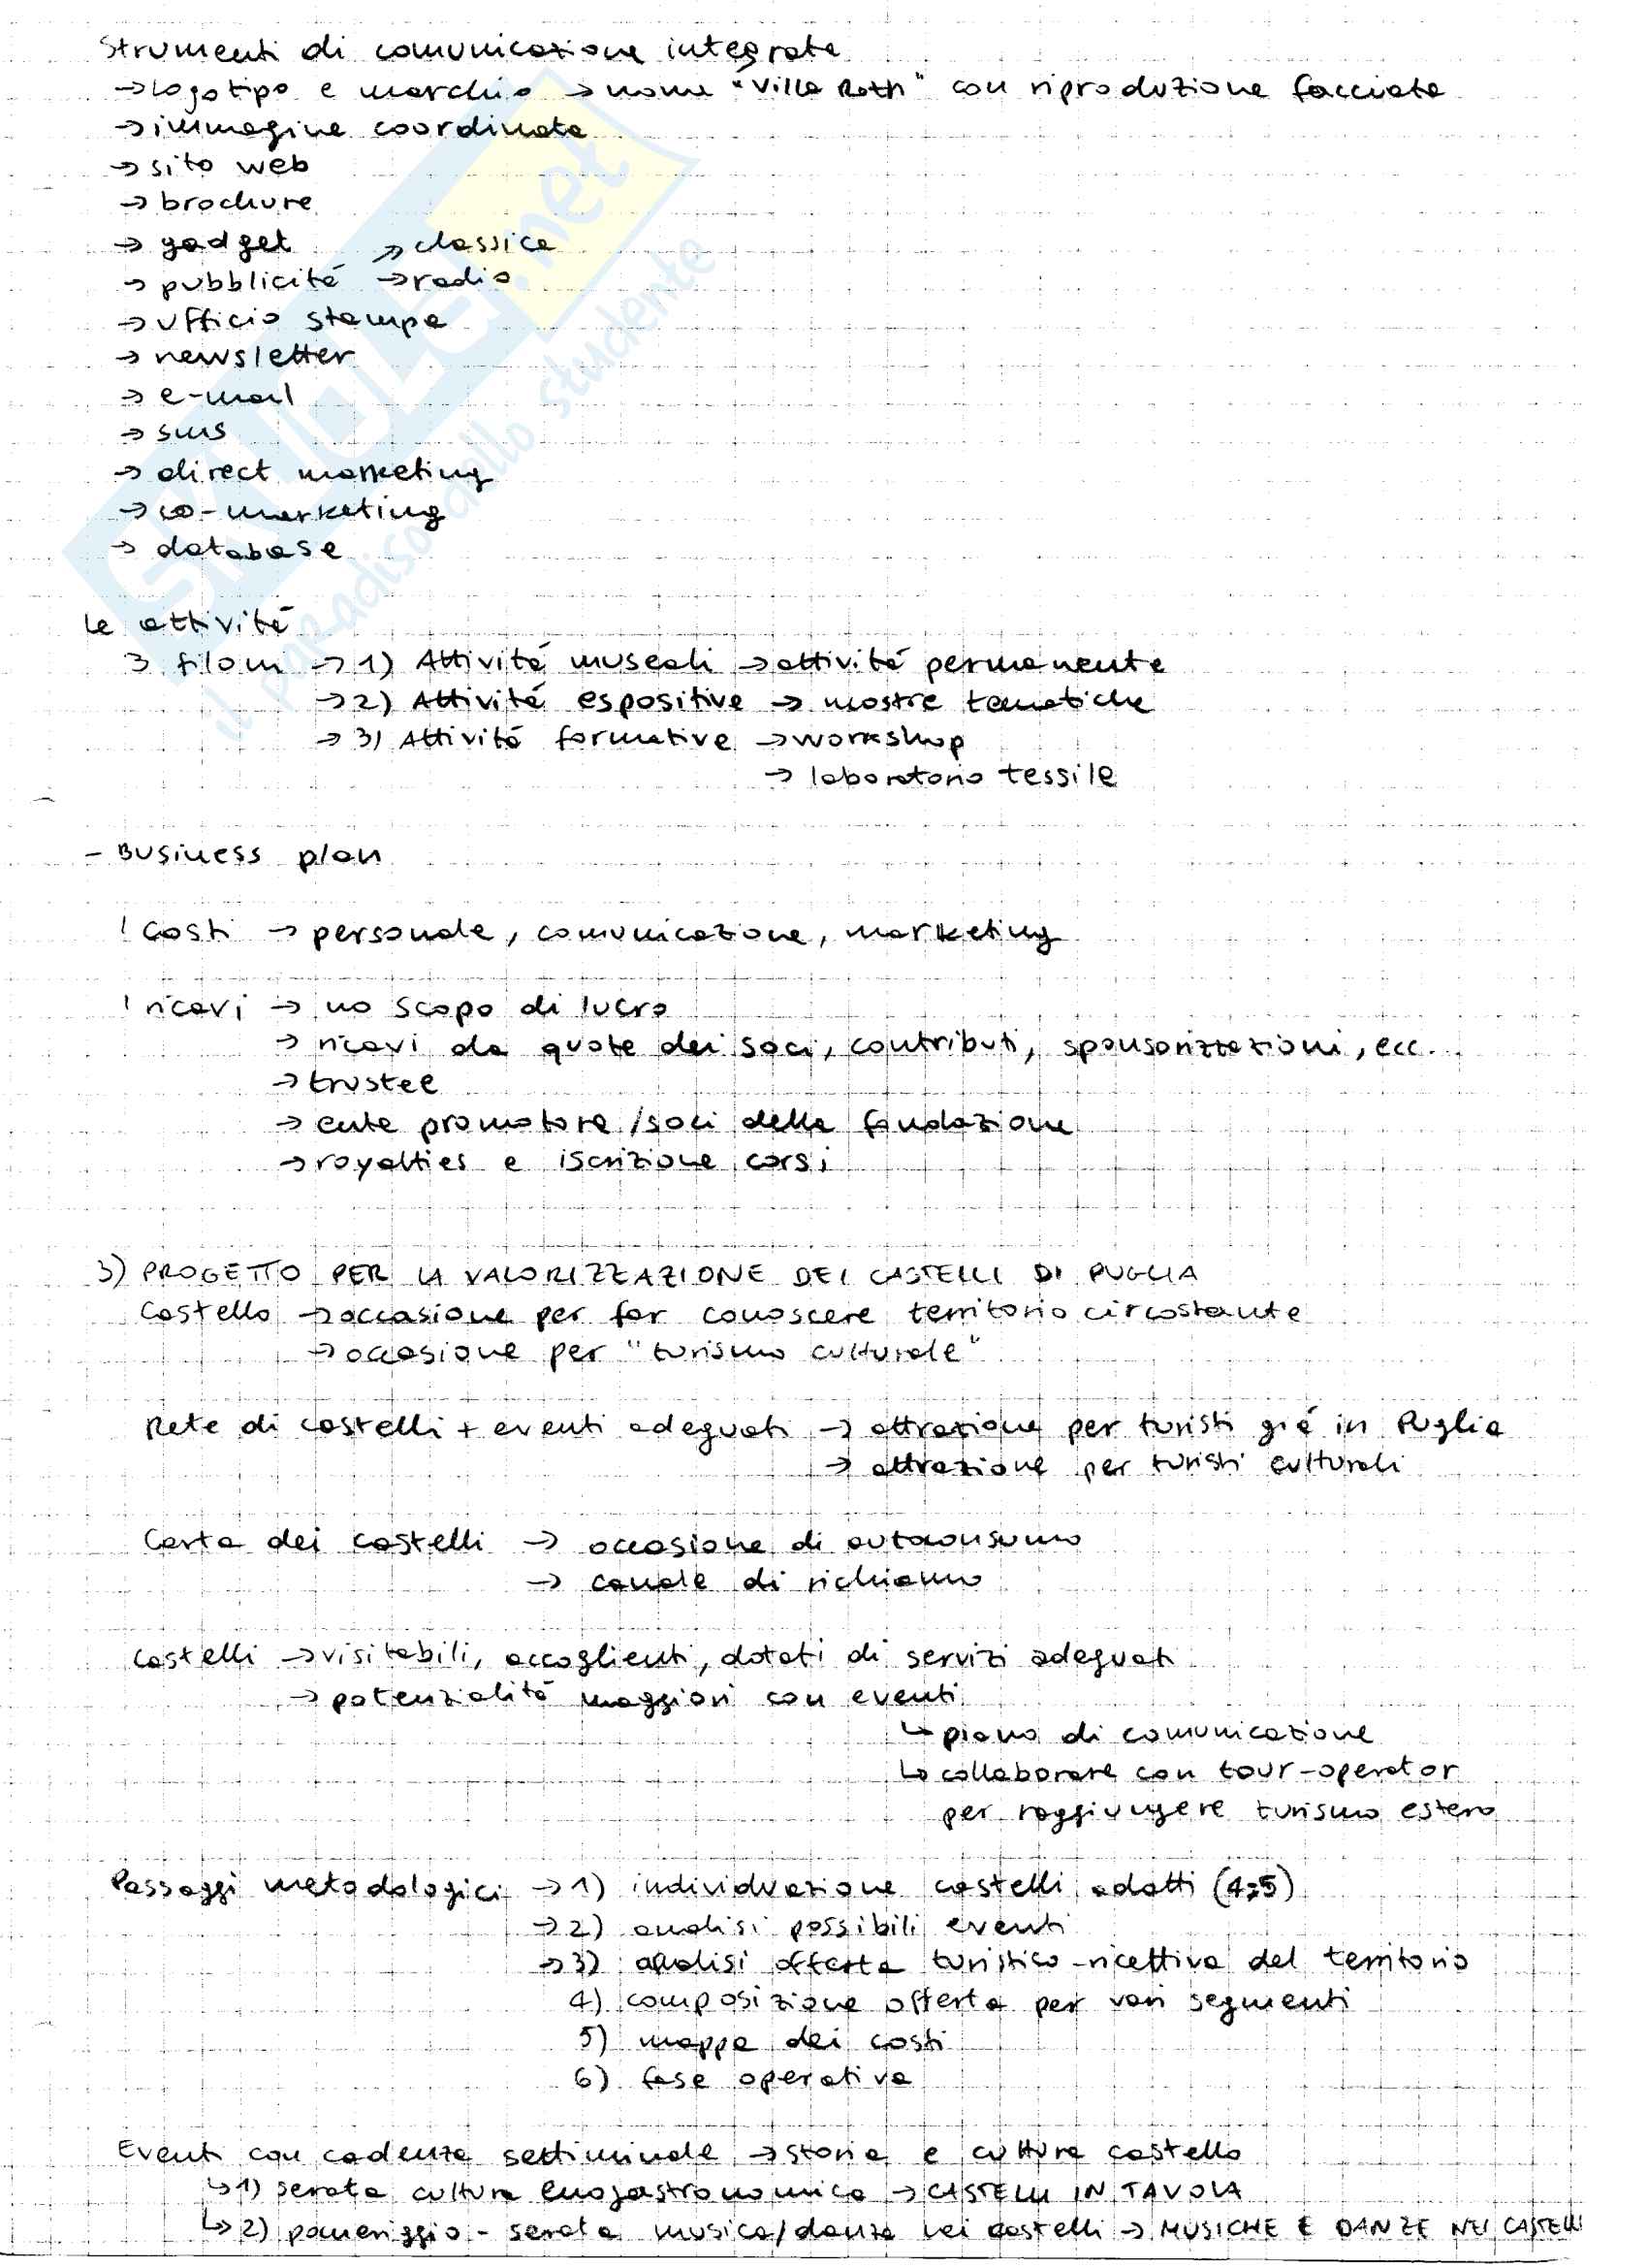 Strumenti di comunicazione integrata
→ logotipo e marchio → nome "Villa Roth" con riproduzione facciata
→ immagine coordinata
→ sito web
→ brochure
→ gadget → classica
→ pubblicità → radio
→ ufficio stampa
→ newsletter
→ e-mail
→ sms
→ direct marketing
→ co-marketing
→ database
Le attività
3 filoni → 1) Attività museali → attività permanente
→ 2) Attività espositive → mostre tematiche
→ 3) Attività formative → workshop
→ laboratorio tessile
- Business plan
I costi → personale, comunicazione, marketing
I ricavi → no scopo di lucro
→ ricavi da quote dei soci, contributi, sponsorizzazioni, ecc...
→ trustee
→ ente promotore/soci della fondazione
→ royalties e iscrizione corsi
3) PROGETTO PER LA VALORIZZAZIONE DEI CASTELLI DI PUGLIA
Castello → occasione per far conoscere territorio circostante
→ occasione per "turismo culturale"
Rete di castelli + eventi adeguati → attrazione per turisti già in Puglia
→ attrazione per turisti culturali
Carta dei castelli → occasione di autoconsumo
→ canale di richiamo
Castelli → visitabili, accoglienti, dotati di servizi adeguati
→ potenzialità maggiori con eventi
↳ piano di comunicazione
↳ collaborare con tour-operator
per raggiungere turismo estero
Passaggi metodologici → 1) individuazione castelli adatti (4;5)
→ 2) analisi possibili eventi
→ 3) analisi offerta turistico-ricettiva del territorio
4) composizione offerta per vari segmenti
5) mappa dei costi
6) fase operativa
Eventi con cadenza settiminale → storia e cultura castello
↳ 1) serata cultura enogastronomica → CASTELLI IN TAVOLA
↳ 2) pomeriggio - serata musica/danza nei castelli → MUSICHE E DANZE NEI CASTELLI
SKUOLA.net
il paradiso dello studente